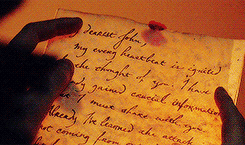 My dearest John,
my every heartbeat is ignited
the thought of you. I have
gained crucial information
I must share with you
Already I've learned the attack
not coming from